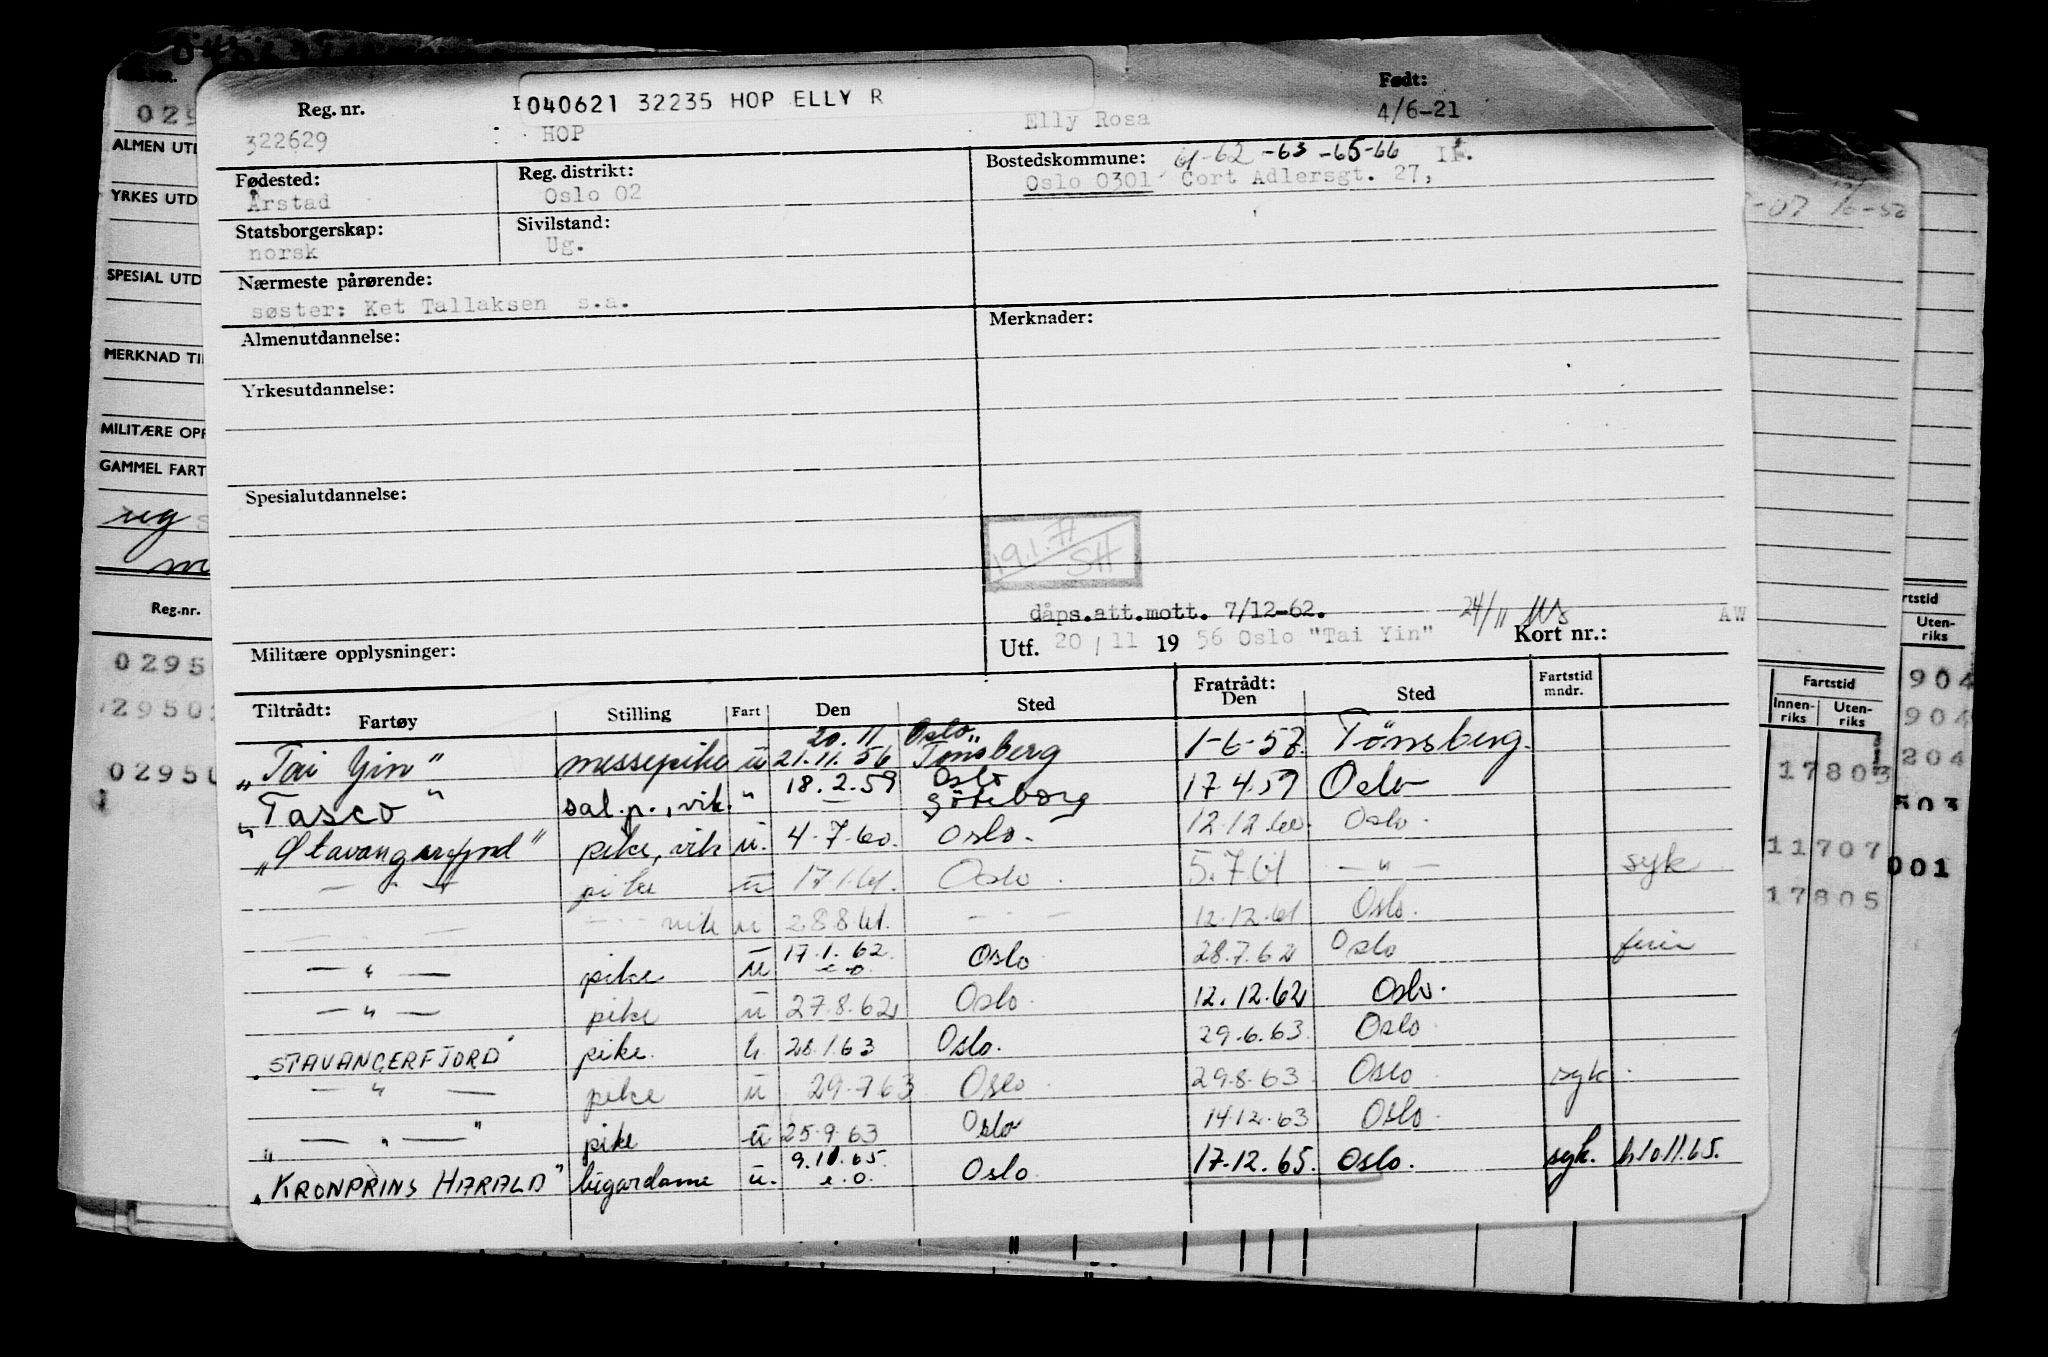 Reg. nr.
040621 32235 HOP ELLY R
Født:
322629
HOP
Elly Rosa
4/6-21
Fødested:
Reg. distrikt:
Bostedskommune: 61-62-63-65-66
Årstad
Oslo 02
Oslo 0301 Cort Adlersgt. 27,
Statsborgerskap:
Sivilstand:
norsk
Ug.
Nærmeste pårørende:
søster: Ket Tallaksen s.a.
Merknader:
Almenutdannelse:
Yrkesutdannelse:
Spesialutdannelse:
19.1.77
SH
dåps.att.mott. 7/12-62. 24/11
AW
Militære opplysninger:
Utf. 20/11 1956 Oslo "Tai Yin" Kort nr.:
Tiltrådt: Fartøy Stilling Fart Den Sted Fratrådt: Den Sted Fartstid mndr.
20.11 Oslo
"Tai Yin" messepike u 21.11.56 Tønsberg 1-6-58. Tønsberg.
18.2.59 Oslo
"Tasco" sal.p., vik. " — Göteborg 17.4.59 Oslo
"Stavangerfjord" pike, vik u. 4.7.60. Oslo. 12.12.60. Oslo.
— " — pike u 17.1.61. Oslo. 5.7.61 — " — syk
— — — vik u 28.8.61. — — 12.12.61 Oslo.
17.1.62
— " — pike u e.o. Oslo 28.7.62 Oslo ferie
— " — pike u 27.8.62 Oslo. 12.12.62 Oslo.
"STAVANGERFJORD" pike. u. 28.1.63 Oslo. 29.6.63. Oslo
— " — pike u 29.7.63 Oslo. 29.8.63 Oslo syk.
"— " —" pike u 25.9.63 Oslo 14.12.63 Oslo.
9.10.65.
"KRONPRINS HARALD" bigardame u. e.o. Oslo 17.12.65. Oslo. syk. 10.11.65.
ALMEN UTD
YRKES UTD
SPESIAL UTD
MERKNAD TI
MILITÆRE OPP
GAMMEL FART
ug
Reg.nr.
0295
29502
0295
16-52
Fartstid
Innen-riks
Uten-riks
17803
11707
17805
rtstid
Uten-riks
904
904
204
503
001